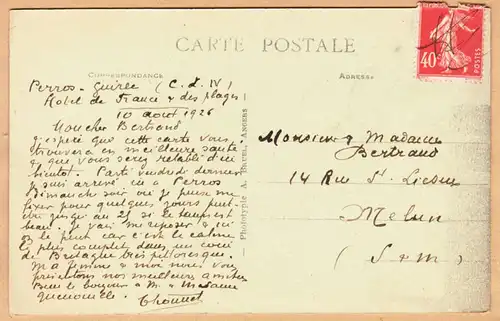 CARTE POSTALE
CORRESPONDANCE
ADRESSE
40c
POSTES
Perros-Guirec (C.d.N)
Hotel de France & des plages
10 aout 1926
Mon cher Bertrand
J'espère que cette carte vous
trouvera en meilleure santé
& que vous serez rétabli d'ici
bientôt. Parti vendredi dernier
je suis arrivé à Perros
Dimanche soir où je pense me
fixer pour quelques jours peut-
être jusqu'au 25 si le temps est
beau. Je vais me reposer & ici
on le peut car c'est le calme
le plus complet dans un coin
de Bretagne très pittoresque.
Ma femme & moi nous vous
présentons nos meilleurs amitiés
Bien le bonjour à M. & Madame
Phototypie A. BRUEL, ANGERS
Monsieur & Madame
Bertrand
14 Rue St.
Melun
(S & M)